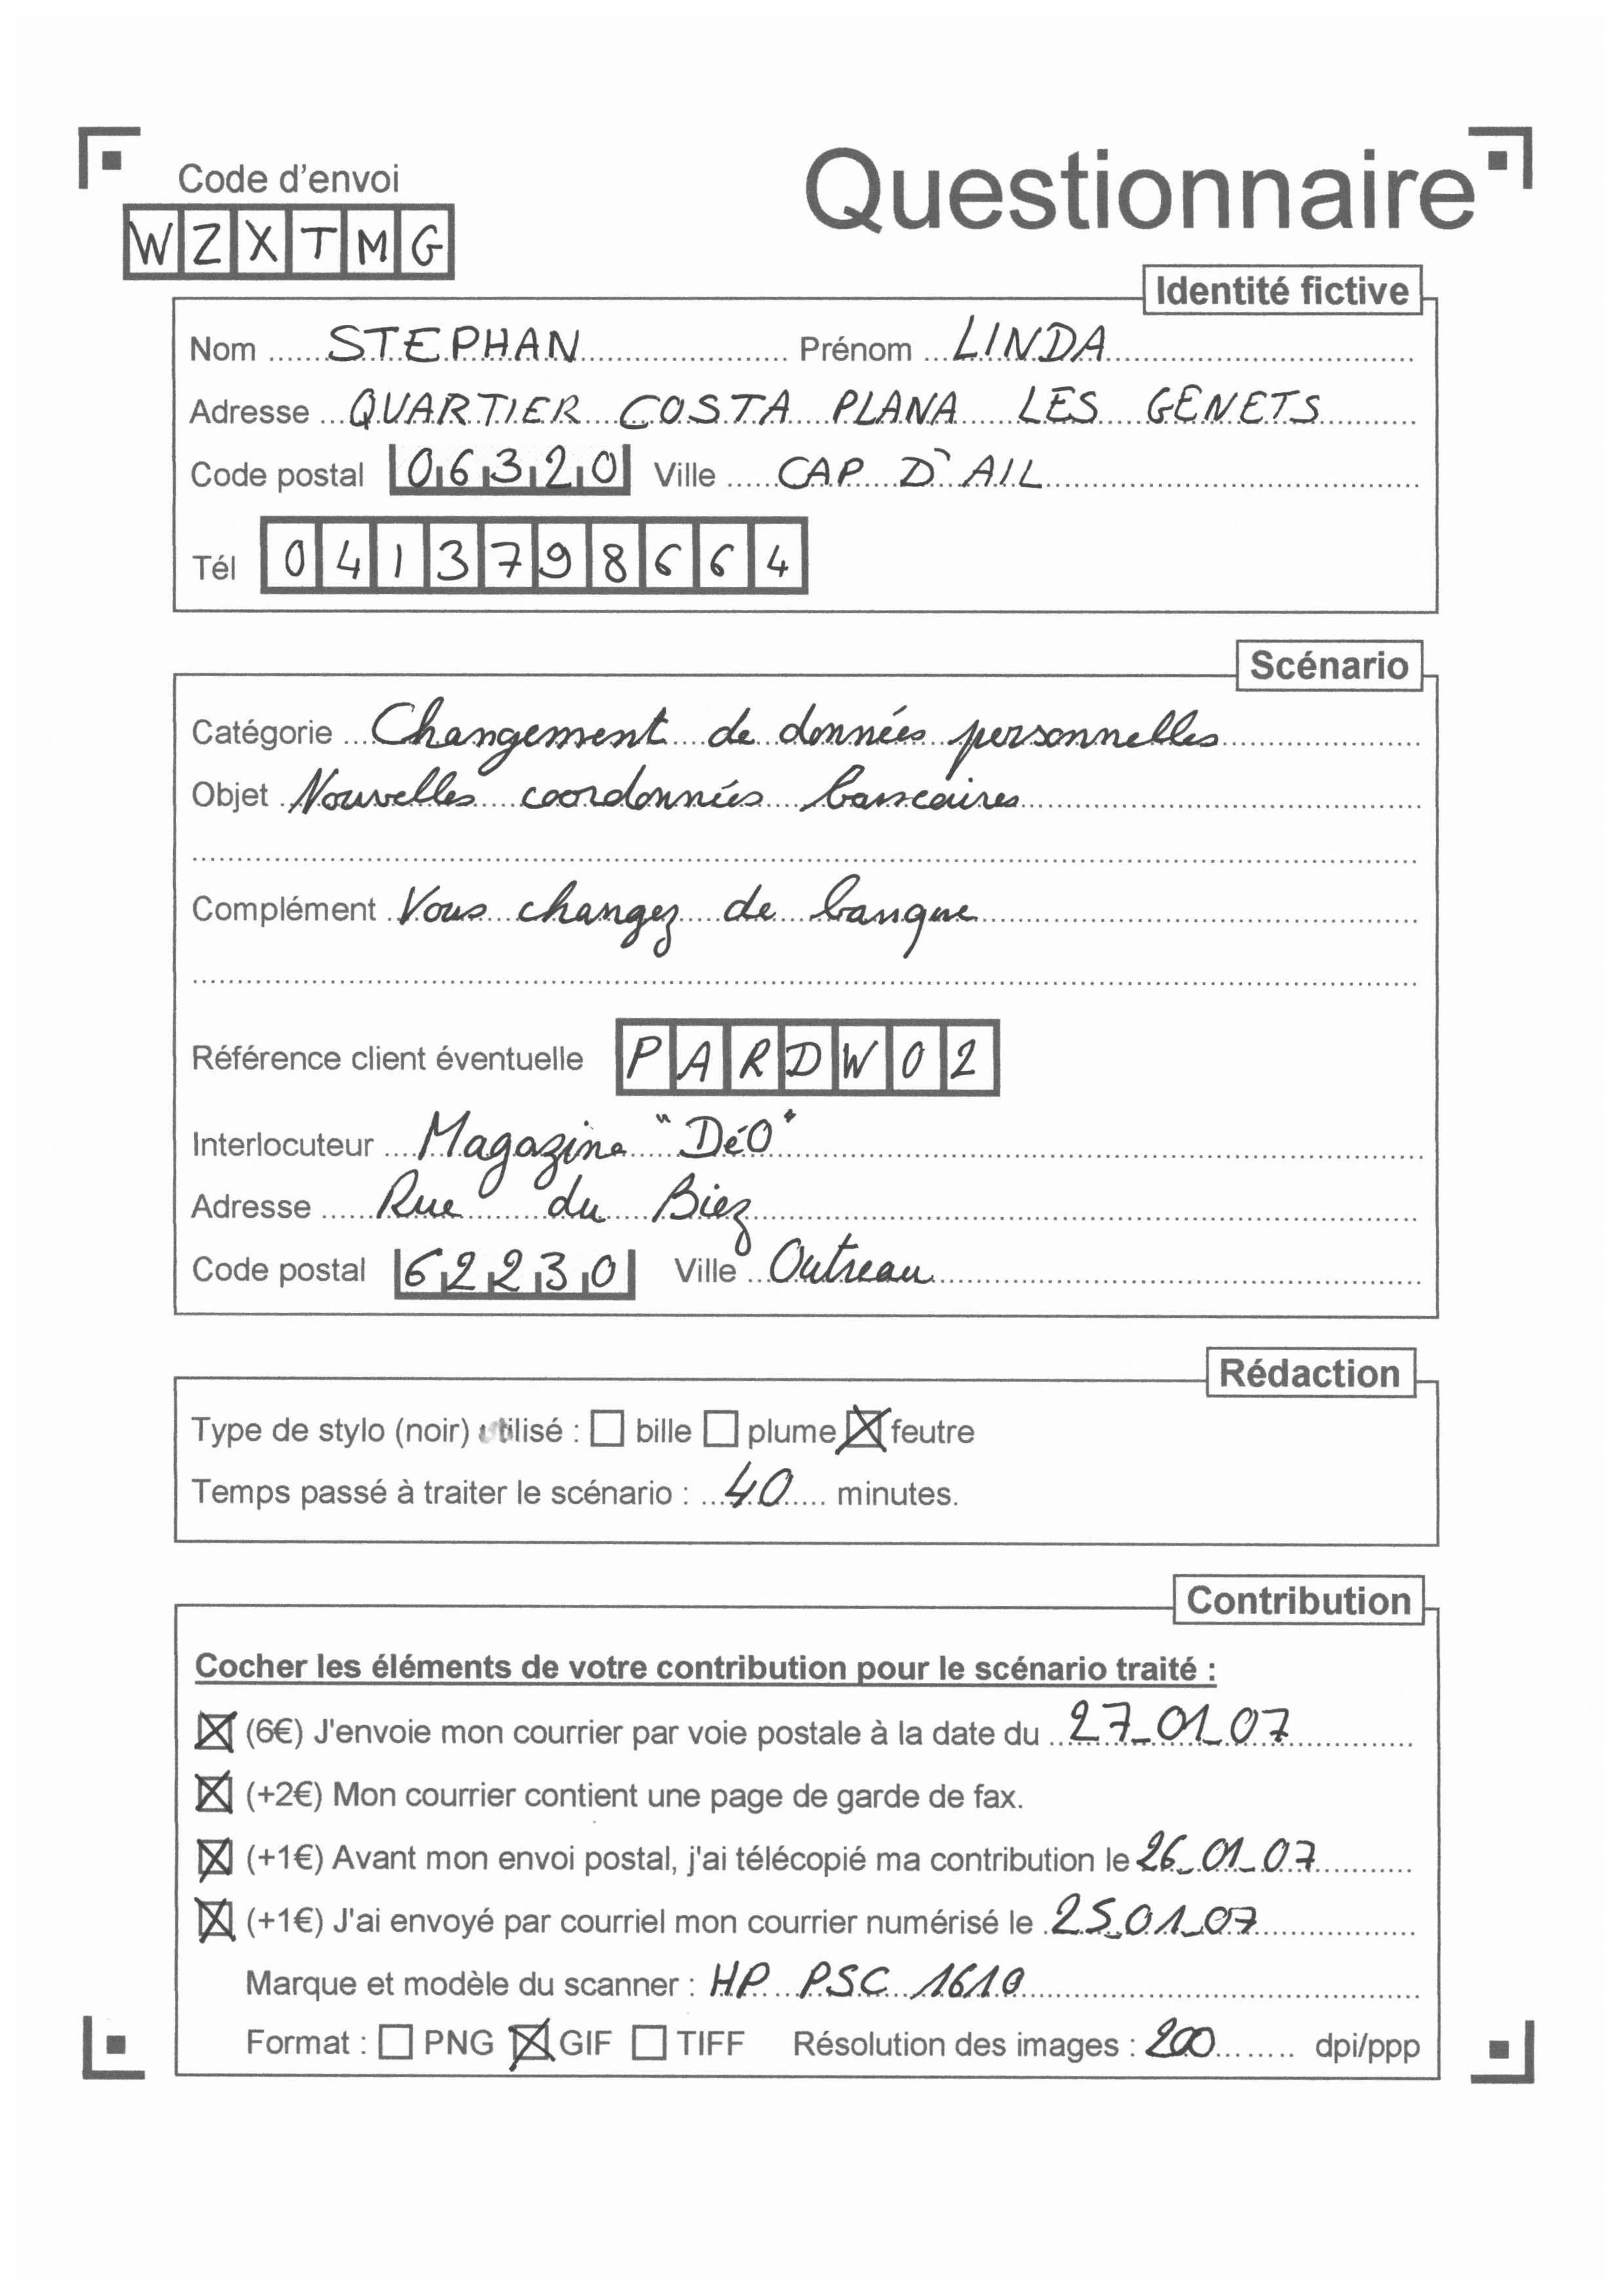 Code d'envoi
Questionnaire
WZXTMG
Identité fictive
Nom STEPHAN Prénom LINDA
Adresse QUARTIER COSTA PLANA LES GENETS
Code postal 06320 Ville CAP D'AIL
Tél 0413798664
Scénario
Catégorie Changement de données personnelles
Objet Nouvelles coordonnées bancaires
Complément Vous changez de banque
Référence client éventuelle PARDW02
Interlocuteur Magazine "DéO"
Adresse Rue du Biez
Code postal 62230 Ville Outreau
Rédaction
Type de stylo (noir) utilisé : bille plume feutre
Temps passé à traiter le scénario : 40 minutes.
Contribution
Cocher les éléments de votre contribution pour le scénario traité :
(6€) J'envoie mon courrier par voie postale à la date du 27_01_07
(+2€) Mon courrier contient une page de garde de fax.
(+1€) Avant mon envoi postal, j'ai télécopié ma contribution le 26_01_07
(+1€) J'ai envoyé par courriel mon courrier numérisé le 25_01_07
Marque et modèle du scanner : HP PSC 1610
Format : PNG GIF TIFF Résolution des images : 200 dpi/ppp